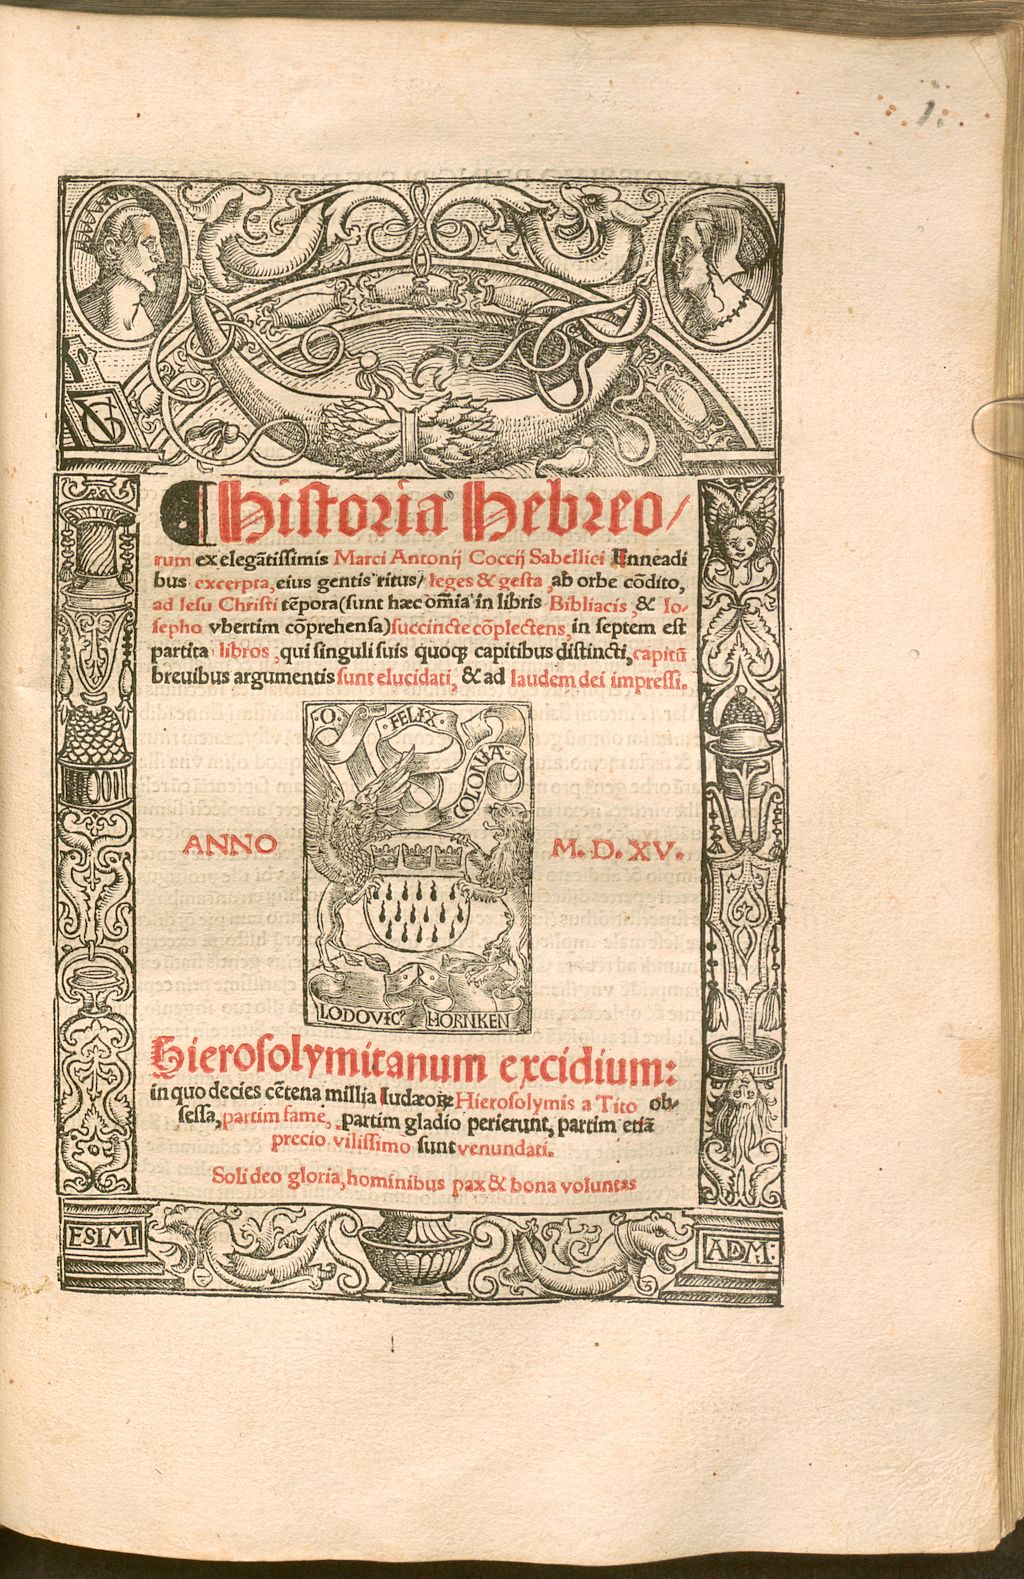 1.
¶ Historia Hebreo/
rum ex elegãtissimis Marci Antonij Coccij Sabellici Enneadi
bus excerpta, eius gentis ritus/ leges & gesta, ab orbe cõdito,
ad Iesu Christi tẽpora (sunt hæc om̃ia in libris Bibliacis, & Io/
sepho vbertim cõprehensa) succincte cõplectens, in septem est
partita libros, qui singuli suis quoqꝫ capitibus distincti, capitũ
breuibus argumentis sunt elucidati, & ad laudem dei impressi.
·O· FELIX·
COLONIA·
ANNO M. D. XV.
LODOVIC⁹ HORNKEN
Hierosolymitanum excidium:
in quo decies cẽtena millia Iudæoꝝ Hierosolymis a Tito ob/
sessa, partim fame, partim gladio perierunt, partim etiã
precio vilissimo sunt venundati.
Soli deo gloria, hominibus pax & bona voluntas
ESIMI ADM: